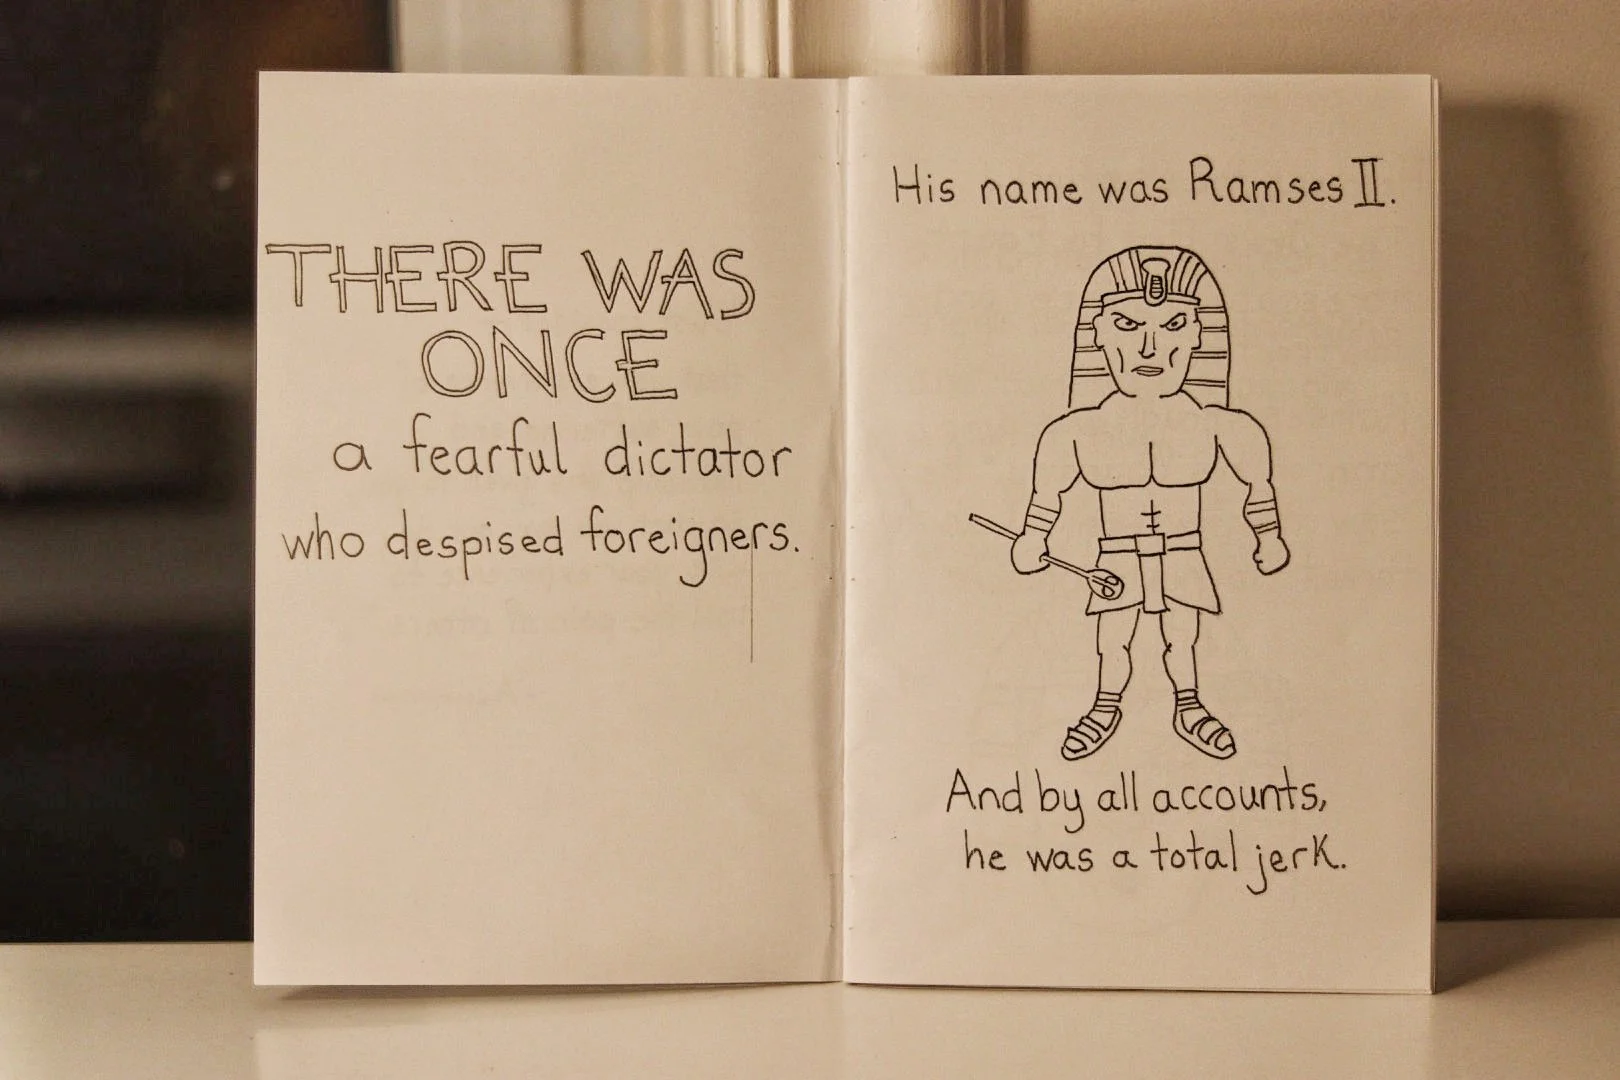 THERE WAS
ONCE
a fearful dictator
who despised foreigners.
His name was Ramses II.
And by all accounts,
he was a total jerk.